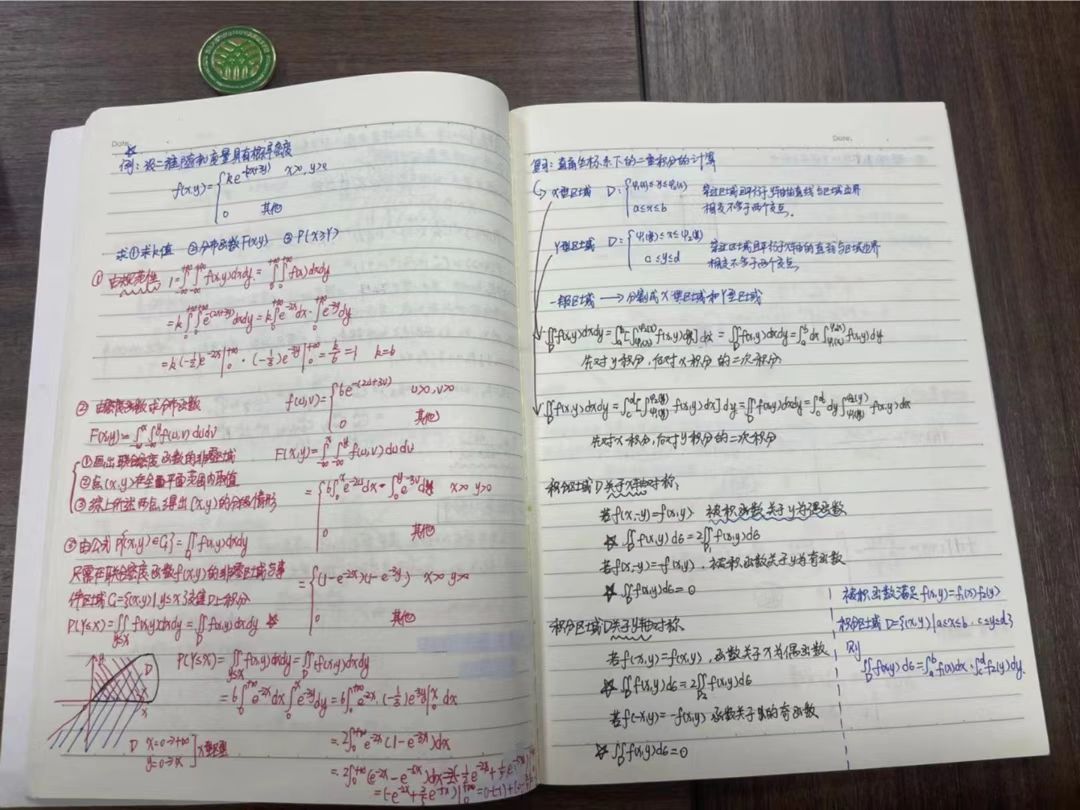 Date.
例：设二维随机变量具有概率密度
f(x,y)={ke^{-(2x+3y)} x>0,y>0
0 其他
求①求k值 ②分布函数F(x,y) ③P{X≥Y}
① 由规范性 1=∫_{-∞}^{+∞}∫_{-∞}^{+∞}f(x,y)dxdy=∫_0^{+∞}∫_0^{+∞}f(x)dxdy
=k∫_0^{+∞}∫_0^{+∞}e^{-(2x+3y)}dxdy=k∫_0^{+∞}e^{-2x}dx·∫_0^{+∞}e^{-3y}dy
=k(-1/2)e^{-2x}|_0^{+∞}·(-1/3)e^{-3y}|_0^{+∞}=k/6=1 k=6
② 由密度函数求分布函数 f(u,v)={6e^{-(2u+3v)} u>0,v>0
0 其他
F(x,y)=∫_{-∞}^x∫_{-∞}^y f(u,v)dudv
①画出联合密度函数的非零区域 F(x,y)=∫_{-∞}^x∫_{-∞}^y f(u,v)dudv
②点(x,y)在全平面范围内取值 ={6∫_0^x e^{-2u}du·∫_0^y e^{-3v}dv x>0 y>0
③综上所述两点,得出(x,y)的分段情形
0 其他
③由公式 P{(x,y)∈G}=∬_D f(x,y)dxdy
只需在联合密度函数f(x,y)的非零区域与事 ={(1-e^{-2x})(1-e^{-3y}) x>0 y>0
件区域G={(x,y)|y≤x}交集D上积分
0 其他
P(Y≤X)=∬_{y≤x}f(x,y)dxdy=∬_D f(x,y)dxdy ☆
P(Y≤X)=∬_{y≤x}f(x,y)dxdy=∬_D f(x,y)dxdy
=6∫_0^{+∞}e^{-2x}dx∫_0^x e^{-3y}dy=6∫_0^{+∞}e^{-2x}·(-1/3)e^{-3y}|_0^x dx
=2∫_0^{+∞}e^{-2x}(1-e^{-3x})dx
D x=0→+∞
y=0→x
X型
Date.
复习：直角坐标系下的二重积分的计算
X型区域 D：{φ₁(x)≤y≤φ₂(x)
a≤x≤b
穿过区域且平行于y轴的直线与区域边界
相交不多于两个交点。
Y型区域 D：{ψ₁(y)≤x≤ψ₂(y)
c≤y≤d
穿过区域且平行于x轴的直线与区域边界
相交不多于两个交点
一般区域 → 分割成X型区域和Y型区域
∬_D f(x,y)dxdy=∫_a^b[∫_{φ₁(x)}^{φ₂(x)}f(x,y)dy]dx=∬_D f(x,y)dxdy=∫_a^b dx∫_{φ₁(x)}^{φ₂(x)}f(x,y)dy
先对y积分,后对x积分的二次积分
∬_D f(x,y)dxdy=∫_c^d[∫_{ψ₁(y)}^{ψ₂(y)}f(x,y)dx]dy=∬_D f(x,y)dxdy=∫_c^d dy∫_{ψ₁(y)}^{ψ₂(y)}f(x,y)dx
先对x积分,后对y积分的二次积分
积分区域D关于x轴对称,
若f(x,-y)=f(x,y) 被积函数关于y为偶函数
☆ ∬_D f(x,y)dσ=2∬_{D₁}f(x,y)dσ
若f(x,-y)=-f(x,y),被积函数关于y为奇函数
☆ ∬_D f(x,y)dσ=0
积分区域D关于y轴对称
若f(-x,y)=f(x,y),函数关于x为偶函数
☆ ∬_D f(x,y)dσ=2∬_{D₂}f(x,y)dσ
若f(-x,y)=-f(x,y) 函数关于x的奇函数
☆ ∬_D f(x,y)dσ=0
被积函数满足f(x,y)=f₁(x)·f₂(y)
积分区域D={(x,y)|a≤x≤b, c≤y≤d}
则
∬_D f(x,y)dσ=∫_a^b f₁(x)dx·∫_c^d f₂(y)dy.